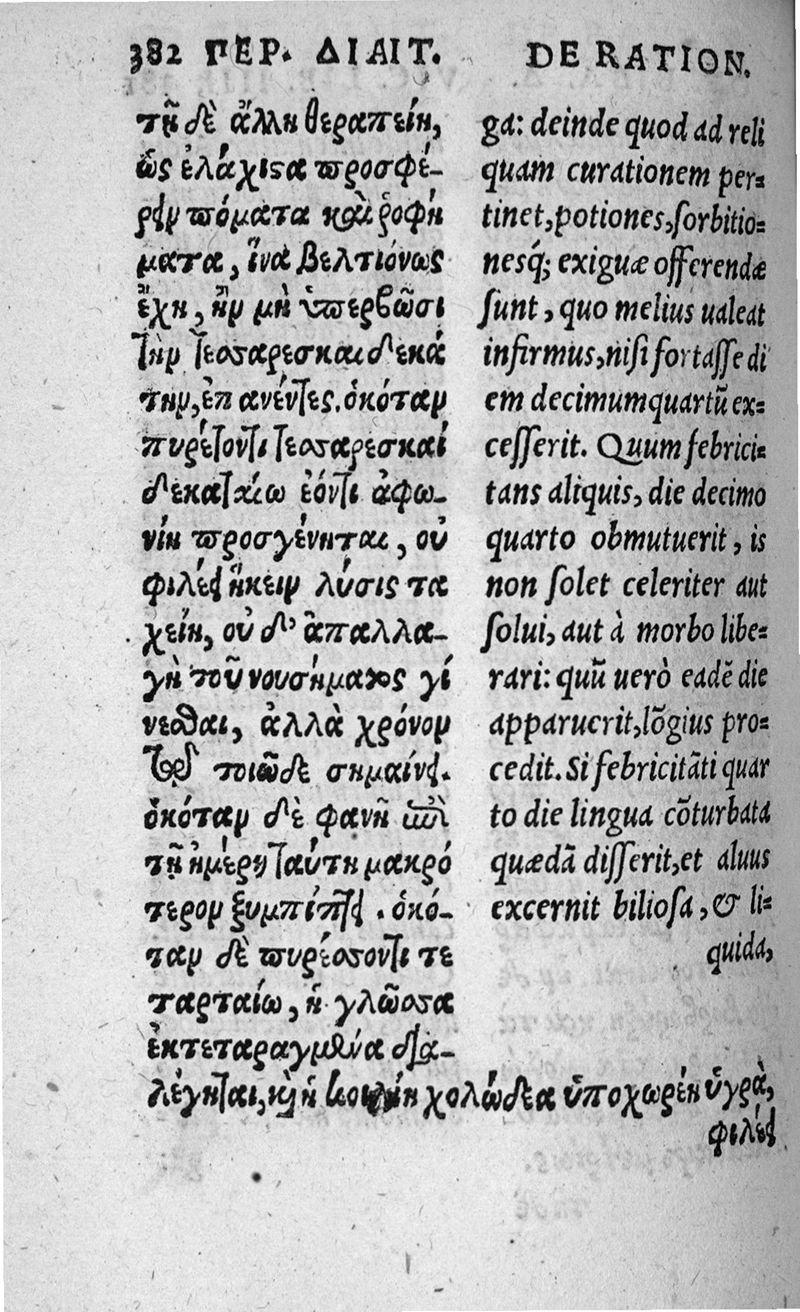 382 ΠΕΡ. ΔΙΑΙΤ.
τῇ δὲ ἄλλη θεραπείη,
ὡς ἐλάχιστα προσφέ-
ρειν πόματα καὶ ῥοφή
ματα, ἵνα βελτιόνως
ἔχη, ἢν μὴ ὑπερβῶσι
τὴν τεσσαρεσκαιδεκά
την, ἐπανέντες. ὁκόταν
πυρέτοντι τεσσαρεσκαί
δεκαταίω ἐόντι ἀφω-
νίη προσγένηται, οὐ
φιλέει ἥκειν λύσις τα
χείη, οὐ δ' ἀπαλλα-
γὴ τοῦ νουσήματος γί
νεσθαι, ἀλλὰ χρόνον
τῷ τοιῷδε σημαίνει.
ὁκόταν δὲ φανῆ ἐπὶ
τῇ ἡμέρῃ ταύτη μακρό
τερον ξυμπίπτει. ὁκό-
ταν δὲ πυρέσσοντι τε
ταρταίω, ἡ γλῶσσα
ἐκτεταραγμένα δια-
λέγηται, καὶ ἡ κοιλίη χολώδεα ὑποχωρέη ὑγρὰ,
φιλέει
DE RATION.
ga: deinde quod ad reli
quam curationem per-
tinet, potiones, sorbitio-
nesq́; exiguæ offerendæ
sunt, quo melius ualeat
infirmus, nisi fortasse di
em decimumquartũ ex-
cesserit. Quum febrici-
tans aliquis, die decimo
quarto obmutuerit, is
non solet celeriter aut
solui, aut à morbo libe-
rari: quũ uerò eadẽ die
apparuerit, lõgius pro-
cedit. Si febricitãti quar
to die lingua cõturbata
quædã disserit, et aluus
excernit biliosa, & li-
quida,